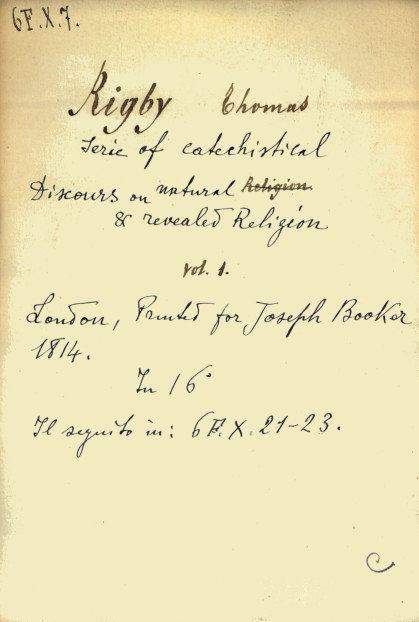 6F.X.7.
Rigby Thomas
Serie of catechistical
Discours on natural Religion
& revealed Religion
vol. 1.
London, Printed for Joseph Booker
1814.
In 16°
Il seguito in: 6F.X.21-23.
C